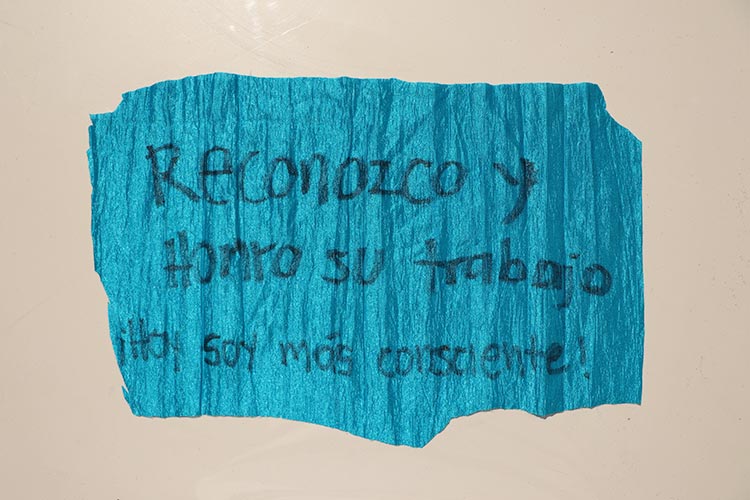 Reconozco y
Honro su trabajo
¡Hoy soy más consciente!